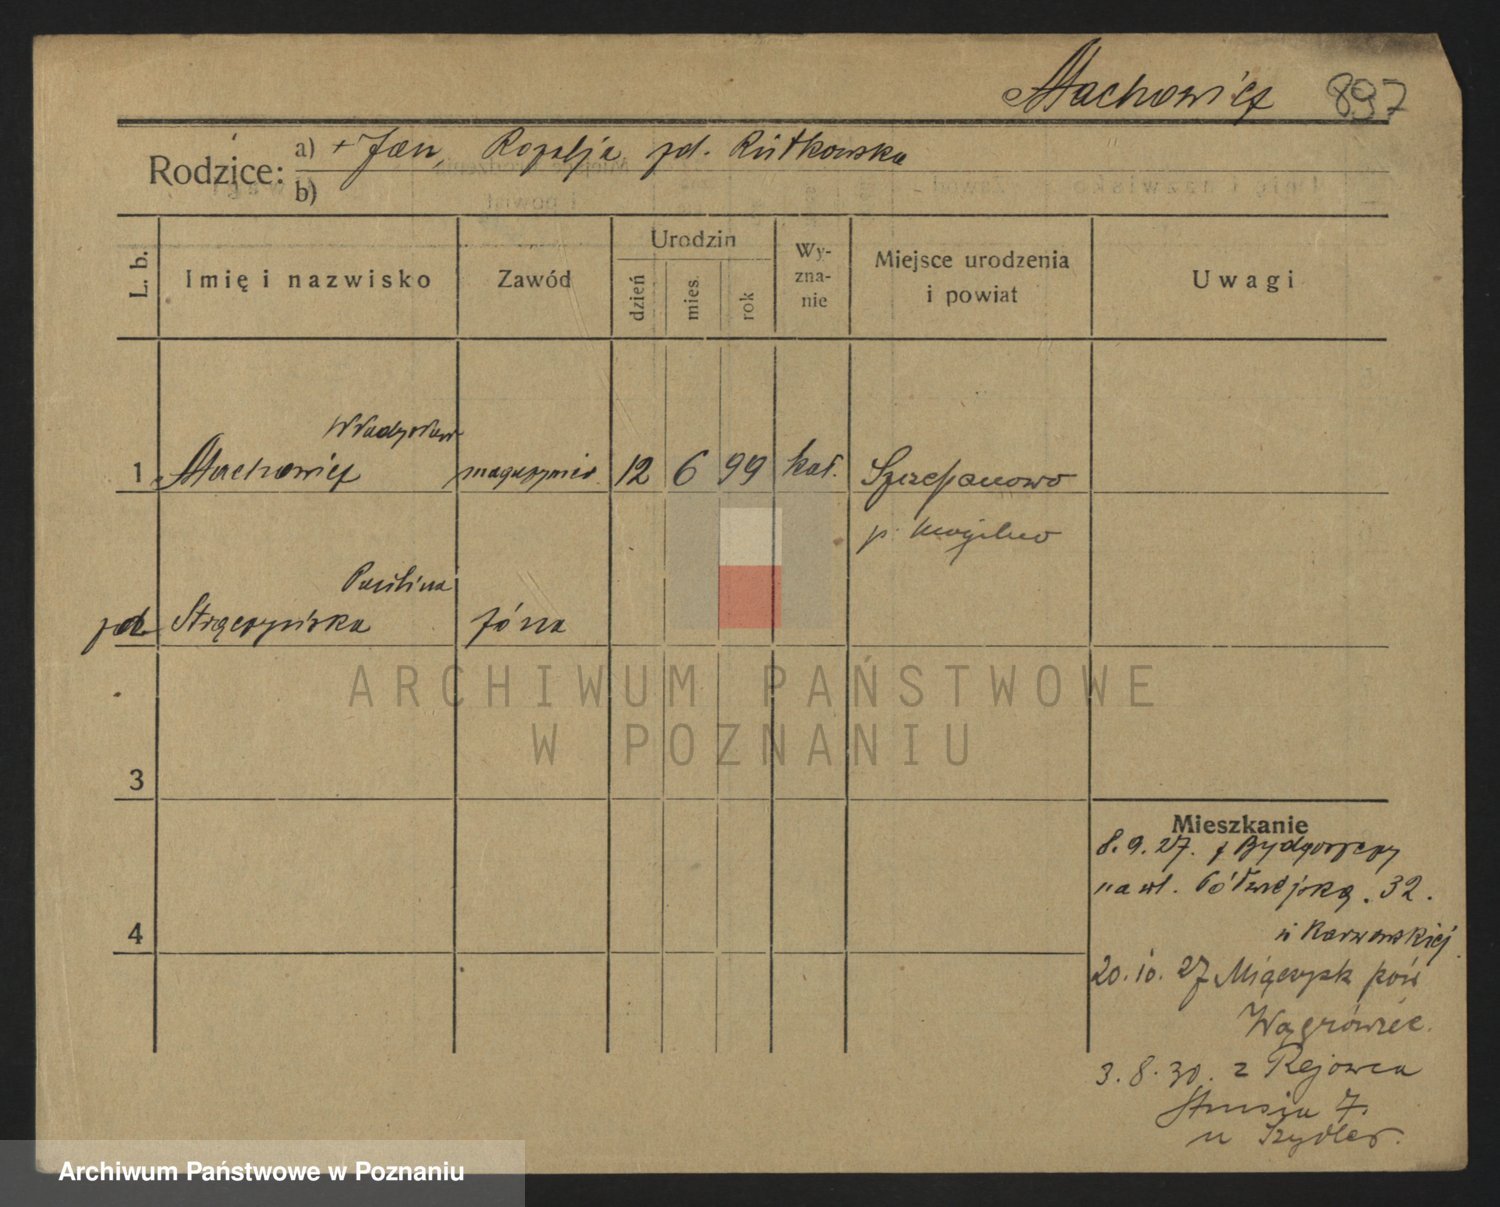 Machowicz 897
Rodzice: a) + Jan, Rozalja zd. Rutkowska
b)
L. b. Imię i nazwisko Zawód Urodzin dzień mies. rok Wy-zna-nie Miejsce urodzenia i powiat Uwagi
Władysław
1 Machowicz magazynier 12 6 99 kat. Szczepanowo
p. Mogilno
Paulina
zd. Strączyńska żona
3
4
Mieszkanie
8.9.27. z Bydgoszczy
na wł. Półwiejską . 32.
u Karwowskiej
20.10.27 Miączynk pow
Wągrówiec.
3.8.30. z Rejowca
Strusia 7.
u Szydler.
ARCHIWUM PAŃSTWOWE
W POZNANIU
Archiwum Państwowe w Poznaniu